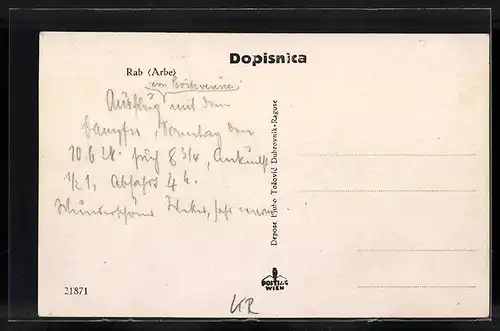 Dopisnica
Rab (Arbe)
von Crikvenica
Ausflug mit dem
Dampfer, Sonntag den
10.6.28. früh 8 3/4, Ankunft
1/2 1, Abfahrt 4 h.
Wunderschönes Wetter, sehr
Depose Ljubo Tošović Dubrovnik-Raguse
POSTIAG
WIEN
21871
KR